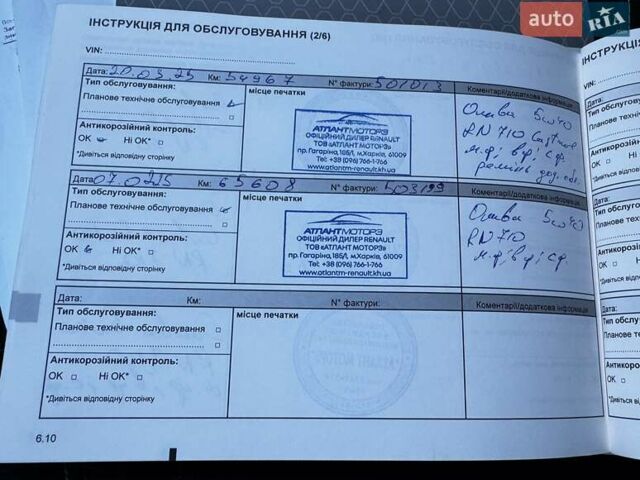 auto RIA.com
ІНСТРУКЦІЯ ДЛЯ ОБСЛУГОВУВАННЯ (2/6)
VIN:
Дата: 20.03.25 Км: 54967 N° фактури: 501013 Коментарі/додаткова інформація
Тип обслуговування:
Планове технічне обслуговування
Антикорозійний контроль:
OK Ні OK*
*Дивіться відповідну сторінку
місце печатки
АТЛАНТ МОТОРЗ
ОФІЦІЙНИЙ ДИЛЕР RENAULT
ТОВ «АТЛАНТ МОТОРЗ»
пр.Гагаріна,185/1, м.Харків, 61009
Tel: +38 (096) 766-1-766
www.atlantm-renault.kh.ua
Олива 5w40
RN 710
м.ф; в.ф; с.ф.
ремінь
Дата: Км: 65608 N° фактури: 503199 Коментарі/додаткова інформація
Тип обслуговування:
Планове технічне обслуговування
Антикорозійний контроль:
OK Ні OK*
*Дивіться відповідну сторінку
місце печатки
АТЛАНТ МОТОРЗ
ОФІЦІЙНИЙ ДИЛЕР RENAULT
ТОВ «АТЛАНТ МОТОРЗ»
пр.Гагаріна,185/1, м.Харків, 61009
Tel.: +38 (096) 766-1-766
www.atlantm-renault.kh.ua
Олива 5w40
RN 710
м.ф; в.ф; с.ф.
Дата: Км: N° фактури: Коментарі/додаткова інформація
Тип обслуговування:
Планове технічне обслуговування
Антикорозійний контроль:
OK Ні OK*
*Дивіться відповідну сторінку
місце печатки
6.10
ІНСТРУКЦІЯ
VIN:
Дата:
Тип обслугов
Планове техн
Антикорозій
OK
*Дивіться відпо
Дата:
Тип обслугов
Планове техн
Антикорозій
OK
*Дивіться відпо
Дата:
Тип обслугов
Планове техн
Антикорозій
OK
*Дивіться відпов